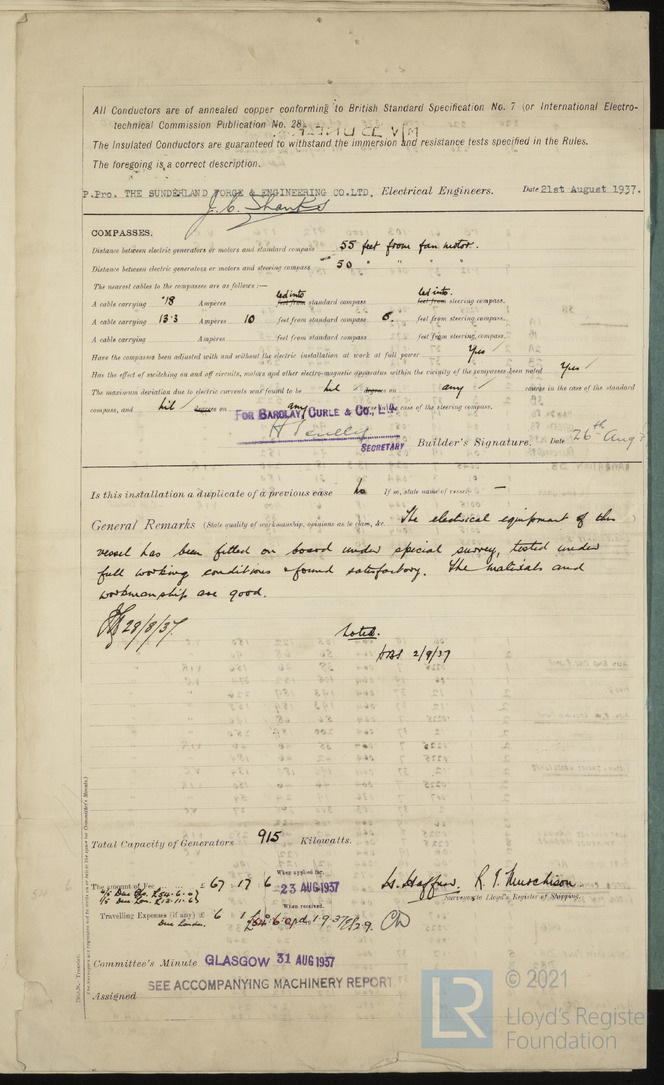 All Conductors are of annealed copper conforming to British Standard Specification No. 7 (or International Electro-
technical Commission Publication No. 28).
The Insulated Conductors are guaranteed to withstand the immersion and resistance tests specified in the Rules.
The foregoing is a correct description.
P.Pro. THE SUNDERLAND FORGE & ENGINEERING CO.LTD. Electrical Engineers. Date 21st August 1937.
J. C. Shanks
COMPASSES.
Distance between electric generators or motors and standard compass 55 feet from fan motor.
Distance between electric generators or motors and steering compass 50 " " " "
The nearest cables to the compasses are as follows:—
A cable carrying .18 Amperes led into feet from standard compass led into feet from steering compass.
A cable carrying 13.3 Amperes 10 feet from standard compass 6. feet from steering compass.
A cable carrying Amperes feet from standard compass feet from steering compass.
Have the compasses been adjusted with and without the electric installation at work at full power Yes
Has the effect of switching on and off circuits, motors and other electro-magnetic apparatus within the vicinity of the compasses been noted Yes
The maximum deviation due to electric currents was found to be nil degrees on any course in the case of the standard
compass, and nil degrees on any course in the case of the steering compass.
FOR BARCLAY, CURLE & CO., LTD.
SECRETARY Builder's Signature. Date 26th Aug
Is this installation a duplicate of a previous case No If so, state name of vessel —
General Remarks (State quality of workmanship, opinions as to class, &c. The electrical equipment of this
vessel has been fitted on board under special survey, tested under
full working conditions & found satisfactory. The materials and
workmanship are good.
28/8/37.
Noted.
2/9/37
Total Capacity of Generators 915 Kilowatts.
The amount of Fee £ 67 : 17 : 6 When applied for, 23 AUG 1937
4/5 Due Gls. £54.6.0
1/5 Due Lon. £13.11.6
When received,
Travelling Expenses (if any) £ 6 : 1
Due London.
H. Haffner. R. J. Murchison.
Surveyors to Lloyd's Register of Shipping.
Committee's Minute GLASGOW 31 AUG 1937
SEE ACCOMPANYING MACHINERY REPORT
Assigned
© 2021
Lloyd's Register
Foundation
LR